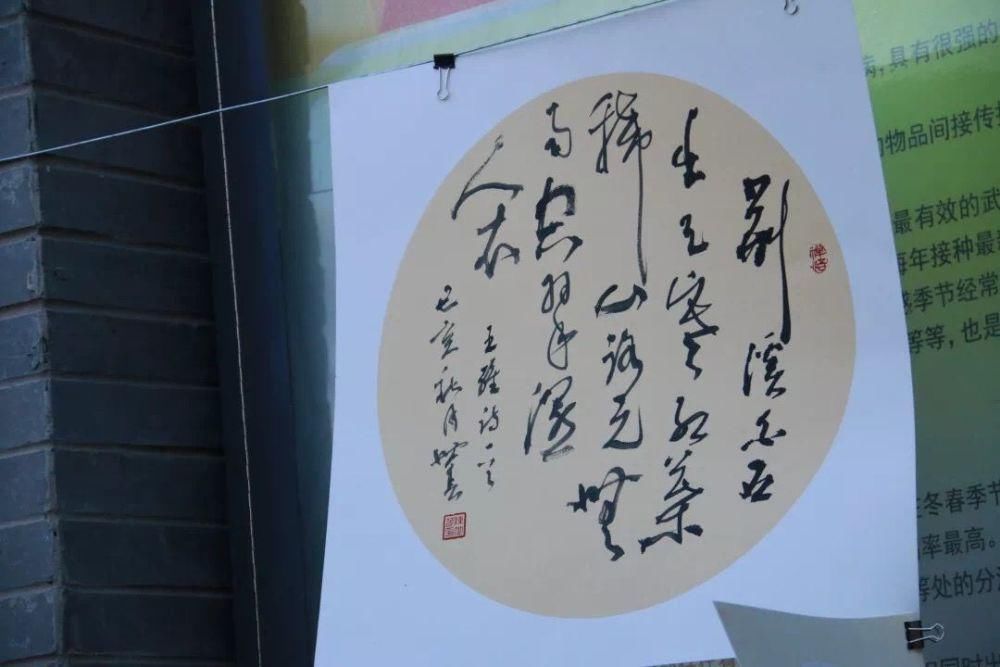 荆溪白石
出天寒红葉
稀山路元無
雨空翠湿
人衣
王維诗一首
己亥秋月
,具有很强的
物品间接传
最有效的武
每年接种最
季节经常
等等,也是
冬春季节
率最高。
等处的分